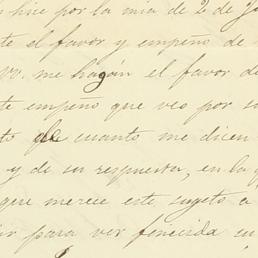 hice por la mia de 2 de
te el favor y empeño de
VV. me hagan el favor de
te empeño que veo por su
to de cuanto me dicen
y de su respuesta, en la
que merece este sugeto a
para ver fenecida su